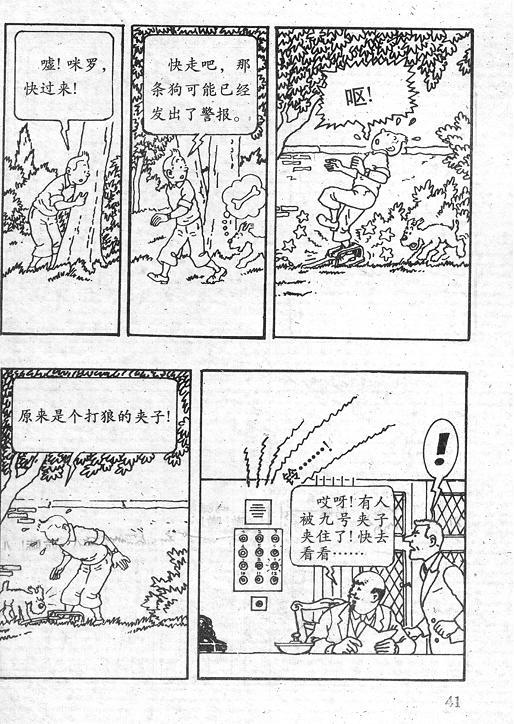 嘘！咪罗，
快过来！
快走吧，那
条狗可能已经
发出了警报。
呕！
原来是个打狼的夹子！
铃……！
哎呀！有人
被九号夹子
夹住了！快去
看看……
!
41